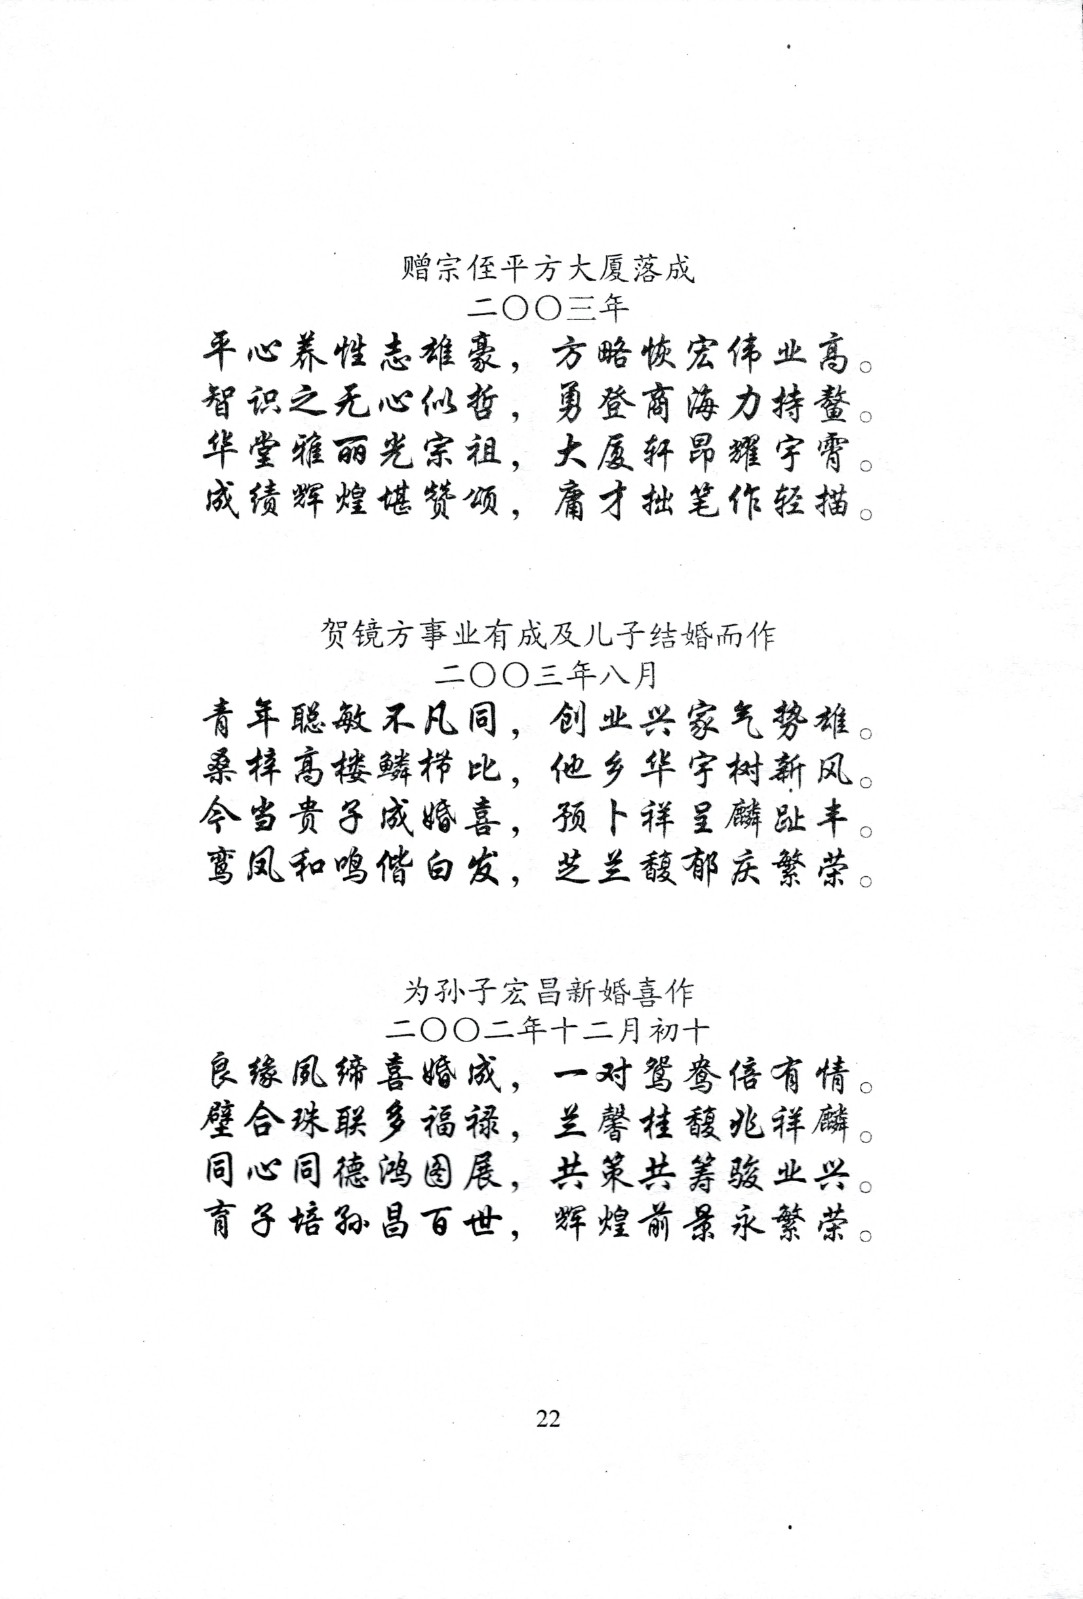 赠宗侄平方大厦落成
二〇〇三年
平心养性志雄豪，方略恢宏伟业高。
智识之无心似哲，勇登商海力持鳌。
华堂雅丽光宗祖，大厦轩昂耀宇霄。
成绩辉煌堪赞颂，庸才拙笔作轻描。
贺镜方事业有成及儿子结婚而作
二〇〇三年八月
青年聪敏不凡同，创业兴家气势雄。
桑梓高楼鳞栉比，他乡华宇树新风。
今当贵子成婚喜，预卜祥呈麟趾丰。
鸾凤和鸣偕白发，芝兰馥郁庆繁荣。
为孙子宏昌新婚喜作
二〇〇二年十二月初十
良缘夙缔喜婚成，一对鸳鸯倍有情。
璧合珠联多福禄，兰馨桂馥兆祥麟。
同心同德鸿图展，共策共筹骏业兴。
育子培孙昌百世，辉煌前景永繁荣。
22